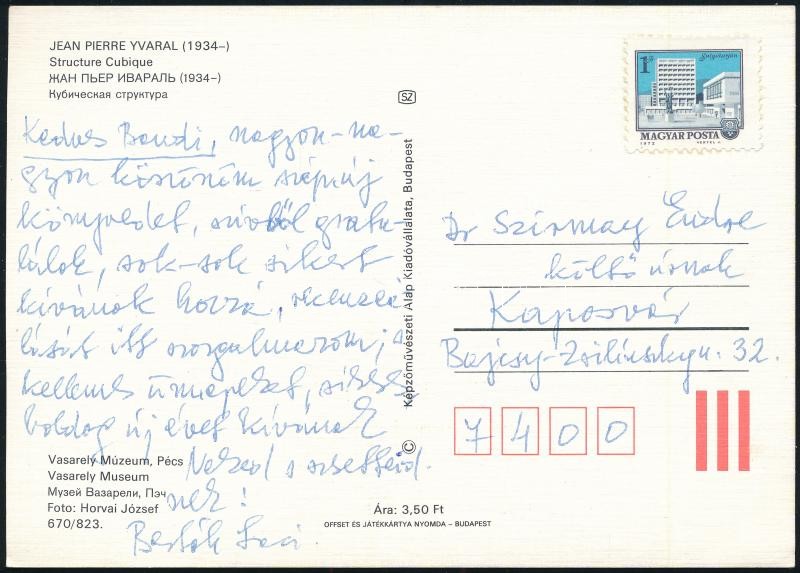 JEAN PIERRE YVARAL (1934–)
Structure Cubique
ЖАН ПЬЕР ИВАРАЛЬ (1934–)
Кубическая структура
Kedves Bandi, nagyon-na-
gyon köszönöm szép új
könyvedet, szívből gratu-
lálok, sok-sok sikert
kívánok hozzá,
itt szorgalmazom;
kellemes ünnepeket, sikeres
boldog új évet kívánok
Neked s szeretteid-
nek!
Bertók Laci
Vasarely Múzeum, Pécs
Vasarely Museum
Музей Вазарели, Пэч
Foto: Horvai József
670/823.
SZ
Képzőművészeti Alap Kiadóvállalata, Budapest
©
Ára: 3,50 Ft
OFFSET ÉS JÁTÉKKÁRTYA NYOMDA – BUDAPEST
1 Ft Salgótarján
MAGYAR POSTA
1972 VERTEL J.
Dr Szirmay Endre
költő úrnak
Kaposvár
Bajcsy-Zsilinszky u. 32.
7400